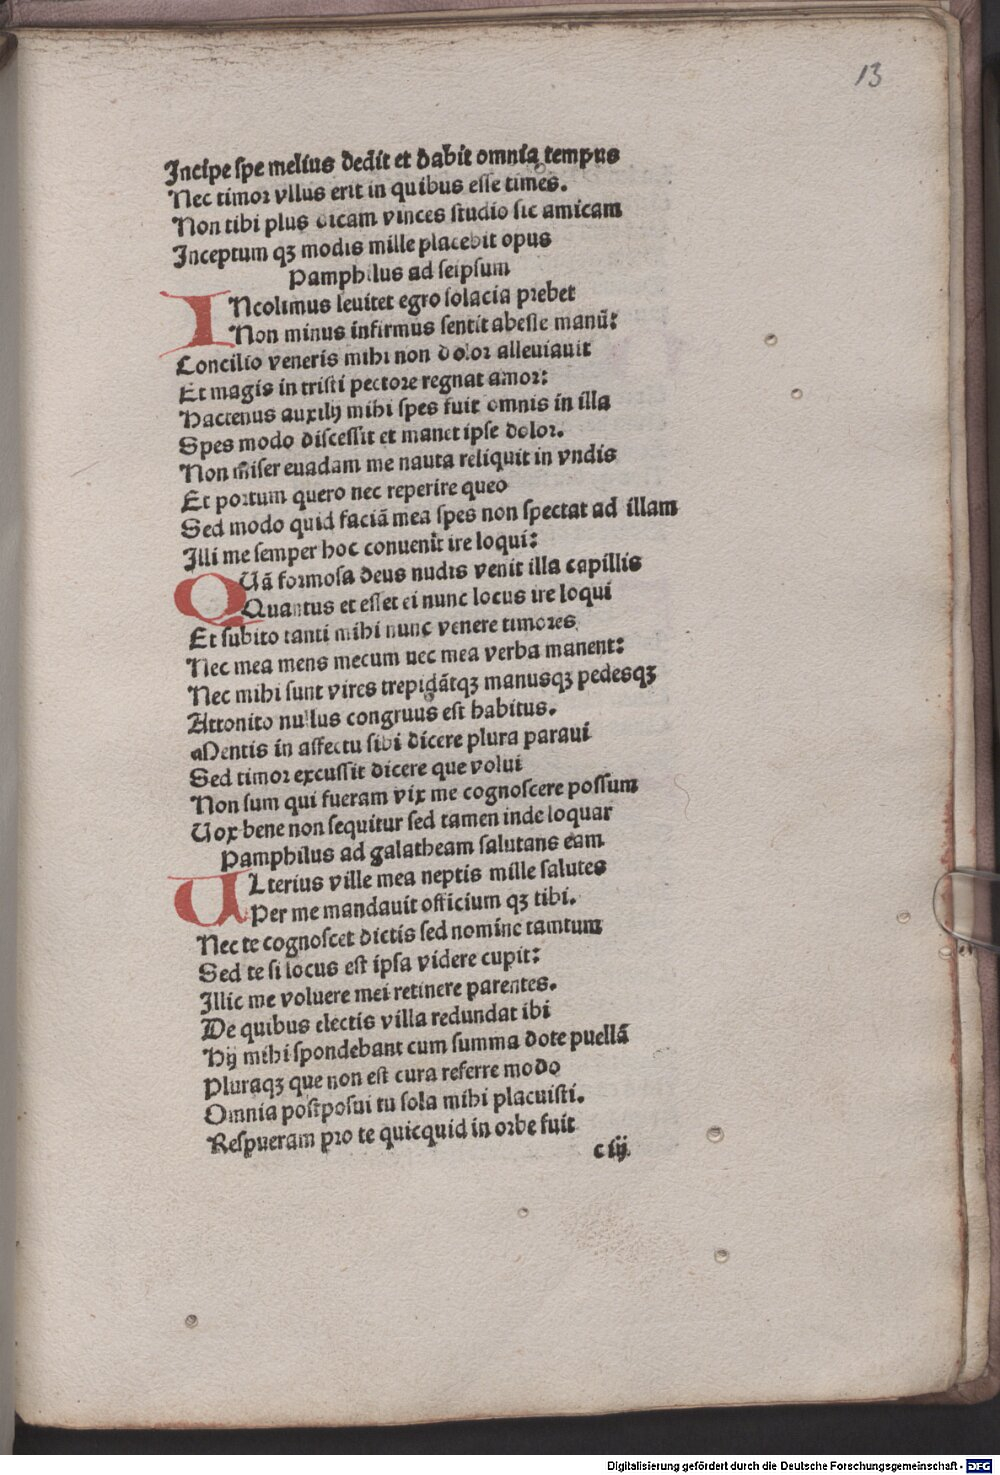 13
Incipe spe melius dedit et dabit omnia tempus
Nec timor vllus erit in quibus esse times.
Non tibi plus dicam vinces studio sic amicam
Inceptum qꝫ modis mille placebit opus
Pamphilus ad seipsum
INcolimus leuitet egro solacia prebet
Non minus infirmus sentit abesse manū:
Concilio veneris mihi non dolor alleuiauit
Et magis in tristi pectore regnat amor:
Hactenus auxilij mihi spes fuit omnis in illa
Spes modo discessit et manet ipse dolor.
Non miser euadam me nauta reliquit in vndis
Et portum quero nec reperire queo
Sed modo quid faciā mea spes non spectat ad illam
Illi me semper hoc conuenit ire loqui:
QUā formosa deus nudis venit illa capillis
Quantus et esset ei nunc locus ire loqui
Et subito tanti mihi nunc venere timores
Nec mea mens mecum nec mea verba manent:
Nec mihi sunt vires trepidātqꝫ manusqꝫ pedesqꝫ
Attonito nullus congruus est habitus.
Mentis in affectu sibi dicere plura paraui
Sed timor excussit dicere que volui
Non sum qui fueram vix me cognoscere possum
Uox bene non sequitur sed tamen inde loquar
Pamphilus ad galatheam salutans eam
ULterius ville mea neptis mille salutes
Per me mandauit officium qꝫ tibi.
Nec te cognoscet dictis sed nomine tamtum
Sed te si locus est ipsa videre cupit:
Illic me voluere mei retinere parentes.
De quibus electis villa redundat ibi
Hij mihi spondebant cum summa dote puellā
Pluraqꝫ que non est cura referre modo
Omnia postposui tu sola mihi placuisti.
Respueram pro te quicquid in orbe fuit
c iij
Digitalisierung gefördert durch die Deutsche Forschungsgemeinschaft - DFG